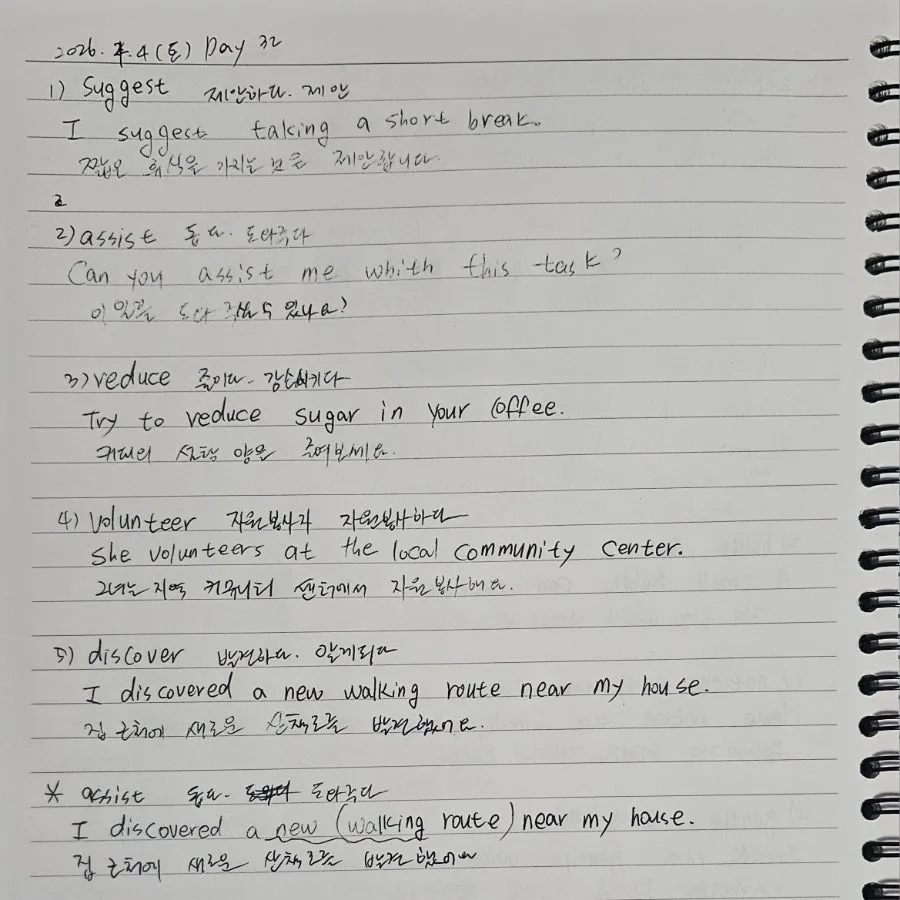 2026. 4. 4 (토) Day 32
1) Suggest 제안하다. 제안
I suggest taking a short break.
짧은 휴식을 가지는 것을 제안합니다.
2
2) assist 돕다. 도와주다
Can you assist me whith this task?
이 일을 도와 주실 수 있나요?
3) reduce 줄이다. 감소시키다
Try to reduce sugar in your coffee.
커피의 설탕 양을 줄여보세요.
4) Volunteer 자원봉사자 자원봉사하다
She volunteers at the local community center.
그녀는 지역 커뮤니티 센터에서 자원봉사해요.
5) discover 발견하다. 알게되다
I discovered a new walking route near my house.
집 근처에 새로운 산책로를 발견했어요.
* assist 돕다. 도와주다
I discovered a new (walking route) near my house.
집 근처에 새로운 산책로를 발견했어요